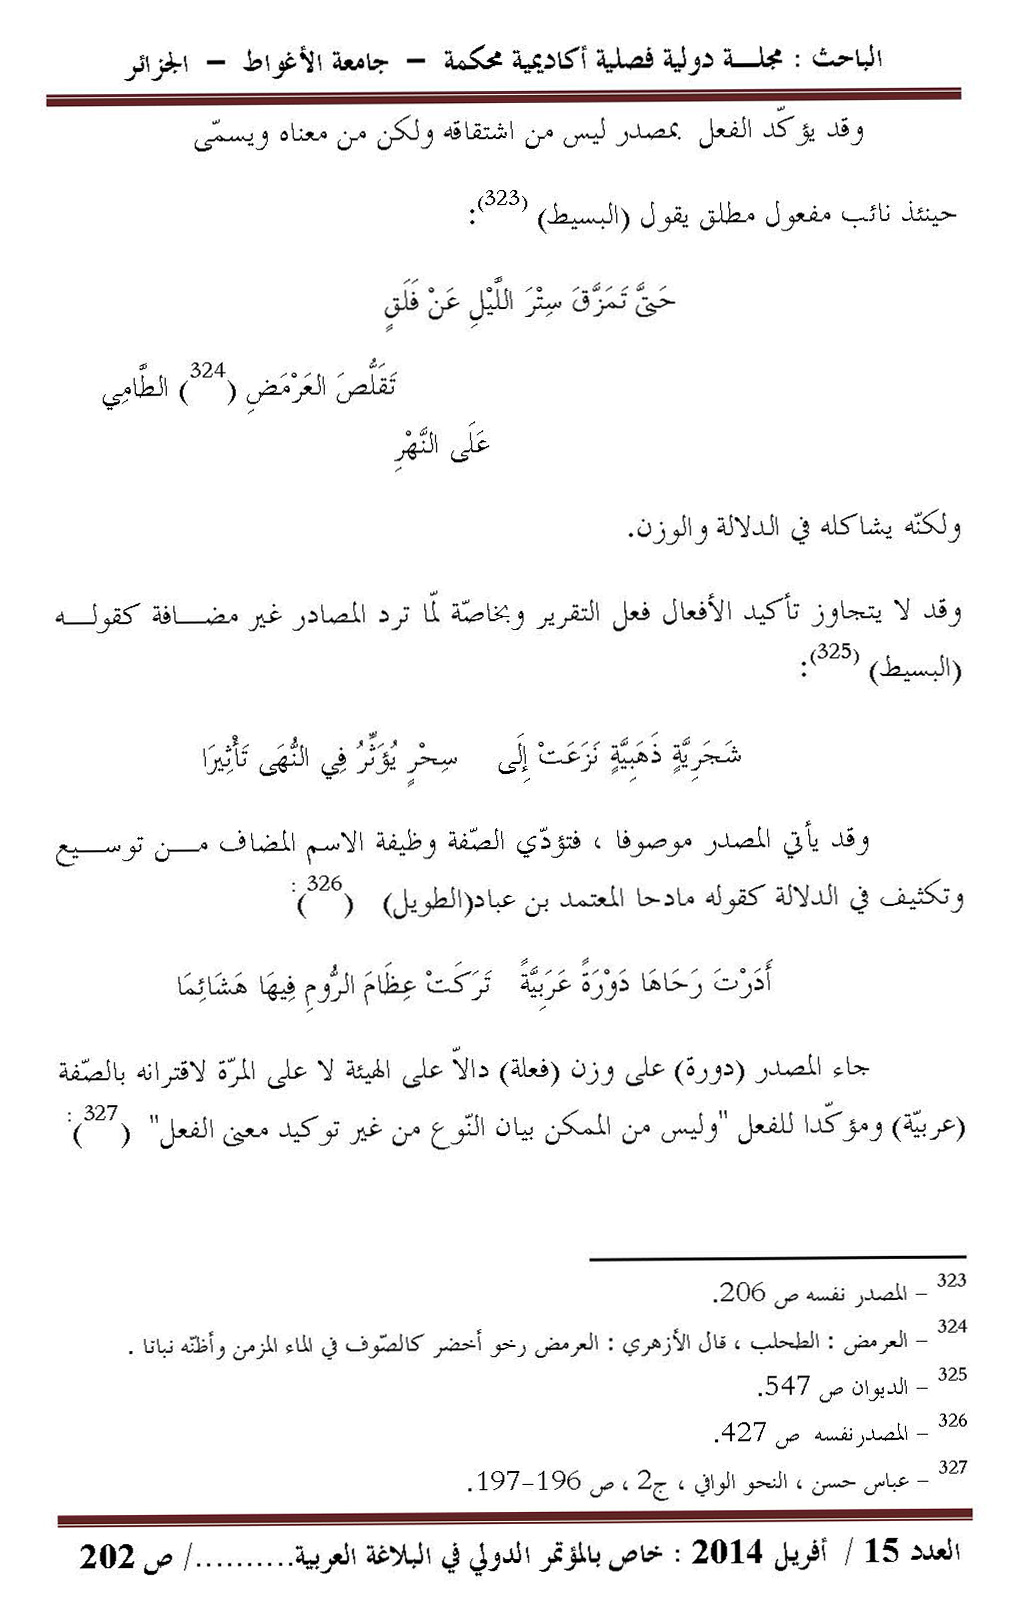 الباحث : مجلـــة دولية فصلية أكاديمية محكمة – جامعة الأغواط – الجزائر
وقد يؤكّد الفعل بمصدر ليس من اشتقاقه ولكن من معناه ويسمّى
حينئذ نائب مفعول مطلق يقول (البسيط) (323):
حَتىَّ تَمَزَّقَ سِتْرَ اللَّيْلِ عَنْ فَلَقٍ
تَقَلُّصَ العَرْمَضِ (324) الطَّامِي
عَلَى النَّهْرِ
ولكنّه يشاكله في الدلالة والوزن.
وقد لا يتجاوز تأكيد الأفعال فعل التقرير وبخاصّة لمّا ترد المصادر غير مضــافة كقولــه
(البسيط) (325):
شَجَرِيَّةٍ ذَهَبِيَّةٍ نَزَعَتْ إِلَى سِحْرٍ يُؤَثِّرُ فِي النُّهَى تَأْثِيرَا
وقد يأتي المصدر موصوفا ، فتؤدّي الصّفة وظيفة الاسم المضاف مـــن توســـيع
وتكثيف في الدلالة كقوله مادحا المعتمد بن عباد(الطويل) (326):
أَدَرْتَ رَحَاهَا دَوْرَةً عَرَبِيَّةً تَرَكَتْ عِظَامَ الرُّومِ فِيهَا هَشَائِمَا
جاء المصدر (دورة) على وزن (فعلة) دالاّ على الهيئة لا على المرّة لاقترانه بالصّفة
(عربيّة) ومؤكّدا للفعل "وليس من الممكن بيان النّوع من غير توكيد معنى الفعل" (327):
323 – المصدر نفسه ص 206.
324 – العرمض : الطحلب ، قال الأزهري : العرمض رخو أخضر كالصّوف في الماء المزمن وأظنّه نباتا .
325 – الديوان ص 547.
326 – المصدرنفسه ص 427.
327 – عباس حسن ، النحو الوافي ، ج2 ، ص 196-197.
العدد 15 / أفريل 2014 : خاص بالمؤتمر الدولي في البلاغة العربية........../ ص 202